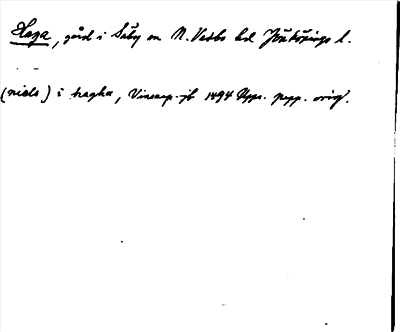 Haga, gård i Säby sn N. Vedbo hd Jönköpings l.
(niels) i hagha, Vinsarp. jb 1494 Upps. papp. orig.